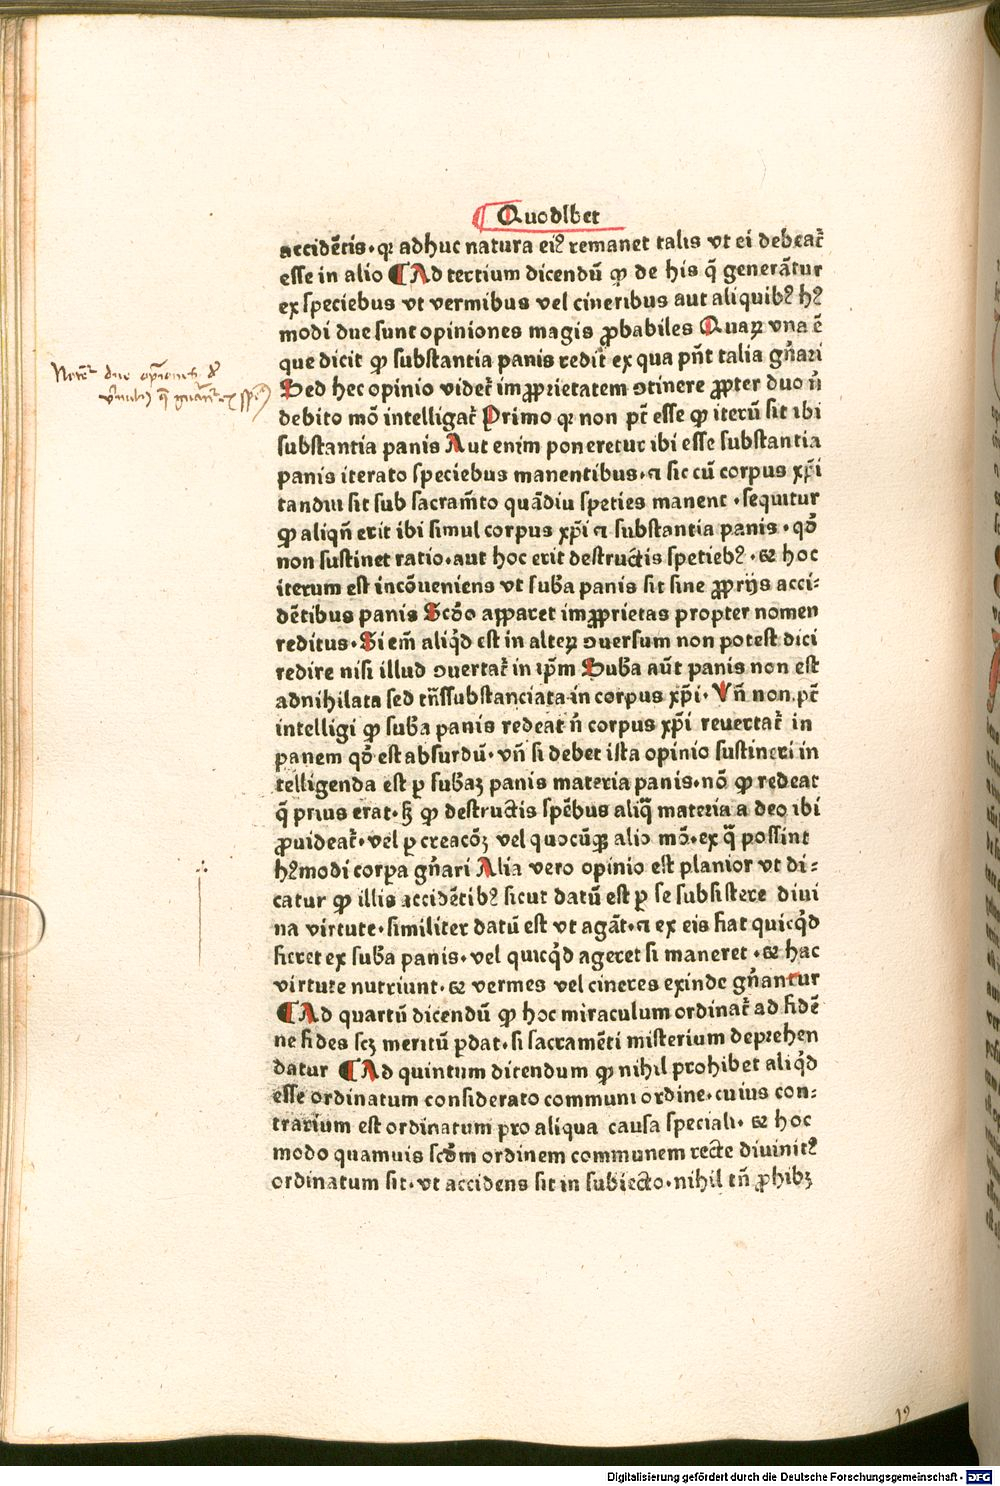 Quodlbet
accidētis · qꝛ adhuc natura eiꝰ remanet talis vt ei debeat᷑
esse in alio ¶ Ad tertium dicendū ꝙ de his q̄ generātur
ex speciebus vt vermibus vel cineribus aut aliquibꝰ hꝰ
modi due sunt opiniones magis ꝓbabiles Quaꝝ vna ē
que dicit ꝙ substantia panis redit ex qua pn̄t talia gn̄ari
Sed hec opinio videt᷑ imꝓprietatem ꝯtinere ꝓpter duo n̄
debito mō intelligat᷑ Primo qꝛ non pt̄ esse ꝙ iterū sit ibi
substantia panis Aut enim poneretur ibi esse substantia
panis iterato speciebus manentibus · ⁊ sic cū corpus xp̄i
tandiu sit sub sacram̄to quādiu speties manent · sequitur
ꝙ aliqn̄ erit ibi simul corpus xp̄i ⁊ substantia panis · qō
non sustinet ratio · aut hoc erit destructis spetiebꝰ · ⁊ hoc
iterum est incōueniens vt suba panis sit sine ꝓprijs acci⸗
dētibus panis Scōo apparet imꝓprietas propter nomen
reditus · Si em̄ aliqd̄ est in alteꝝ ꝯuersum non potest dici
redire nisi illud ꝯuertat᷑ in ip̄m Suba aūt panis non est
adnihilata sed trn̄ssubstanciata in corpus xp̄i · Vn̄ non pt̄
intelligi ꝙ suba panis redeat n̄ corpus xp̄i reuertat᷑ in
panem qō est absurdū · vn̄ si debet ista opinio sustineri in
telligenda est ꝑ subaꝫ panis materia panis · nō ꝙ redeat
q̄ prius erat · sꝫ ꝙ destructis spēbus aliq̄ materia a deo ibi
ꝓuideat᷑ · vel ꝑ creacōꝫ vel quocūqꝫ alio mō · ex q̄ possint
hꝰmodi corpa gn̄ari Alia vero opinio est planior vt di⸗
catur ꝙ illis accidētibꝰ sicut datū est ꝑ se subsistere diui
na virtute · similiter datū est vt agāt · ⁊ ex eis fiat quicqd̄
fieret ex suba panis · vel quicqd̄ ageret si maneret · ⁊ hac
virtute nutriunt · ⁊ vermes vel cineres exinde gn̄antur
¶ Ad quartū dicendū ꝙ hoc miraculum ordinat᷑ ad fidē
ne fides scꝫ meritū ꝑdat · si sacramēti misterium deprehen
datur ¶ Ad quintum dicendum ꝙ nihil prohibet aliqd̄
esse ordinatum considerato communi ordine · cuius con⸗
trarium est ordinatum pro aliqua causa speciali · ⁊ hoc
modo quamuis scōm ordinem communem recte diuinitꝰ
ordinatum sit · vt accidens sit in subiecto · nihil tn̄ ꝓhibꝫ
19
Digitalisierung gefördert durch die Deutsche Forschungsgemeinschaft - DFG